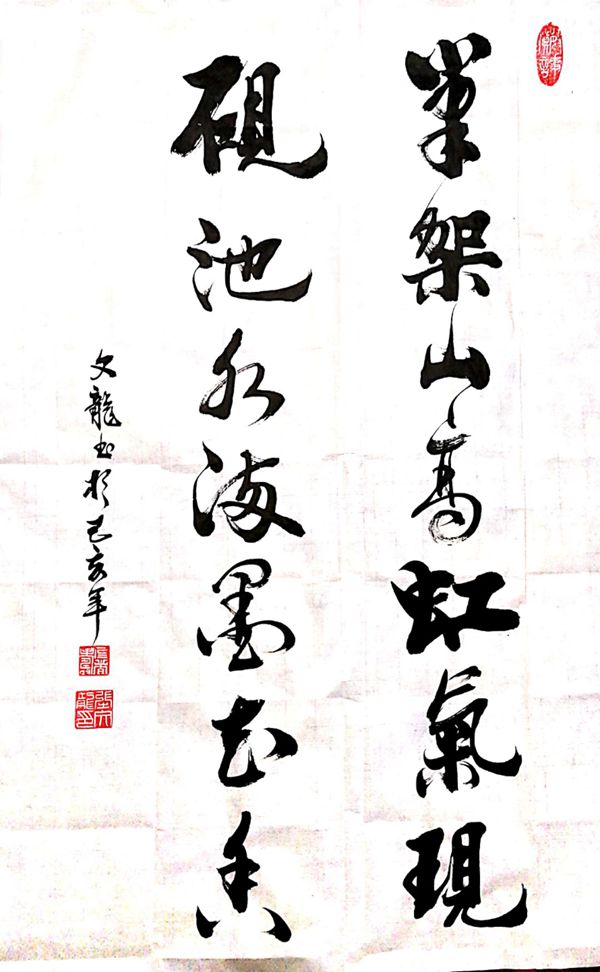 筆架山高虹氣現
硯池水滿墨花香
文龍书於己亥年
張文龍印